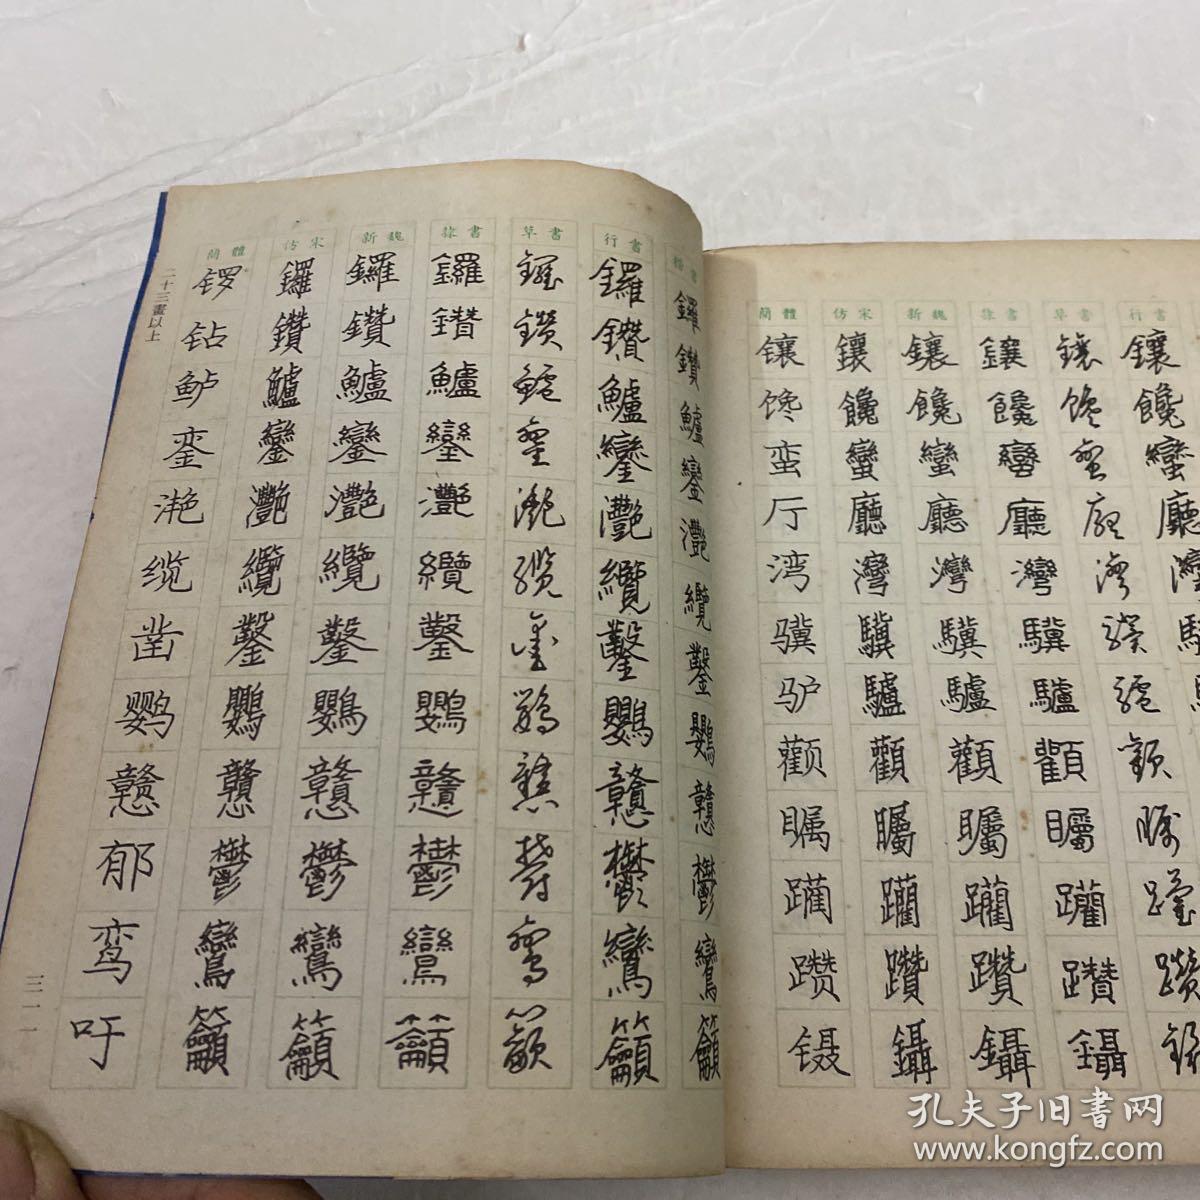 二十三畫以上
簡體 仿宋 新魏 隸書 草書 行書 楷書
锣 鑼 鑼 鑼 鑼 鑼 鑼
钻 鑽 鑽 鑽 鑽 鑽 鑽
鲈 鱸 鱸 鱸 鱸 鱸 鱸
銮 鑾 鑾 鑾 鑾 鑾 鑾
滟 灩 灩 灩 灩 灩 灩
缆 纜 纜 纜 纜 纜 纜
凿 鑿 鑿 鑿 鑿 鑿 鑿
鹦 鸚 鸚 鸚 鸚 鸚 鸚
戇 戇 戇 戇 戇 戇 戇
郁 鬱 鬱 鬱 鬱 鬱 鬱
鸾 鸞 鸞 鸞 鸞 鸞 鸞
吁 籲 籲 籲 籲 籲 籲
三一一
簡體 仿宋 新魏 隸書 草書 行書
镶 鑲 鑲 鑲 鑲 鑲
馋 饞 饞 饞 饞 饞
蛮 蠻 蠻 蠻 蠻 蠻
厅 廳 廳 廳 廳 廳
湾 灣 灣 灣 灣 灣
骥 驥 驥 驥 驥
驴 驢 驢 驢 驢
颧 顴 顴 顴 顴
瞩 矚 矚 矚 矚
躜 躦 躦 躦 躦
镊 鑷 鑷 鑷 鑷
孔夫子旧书网
www.kongfz.com